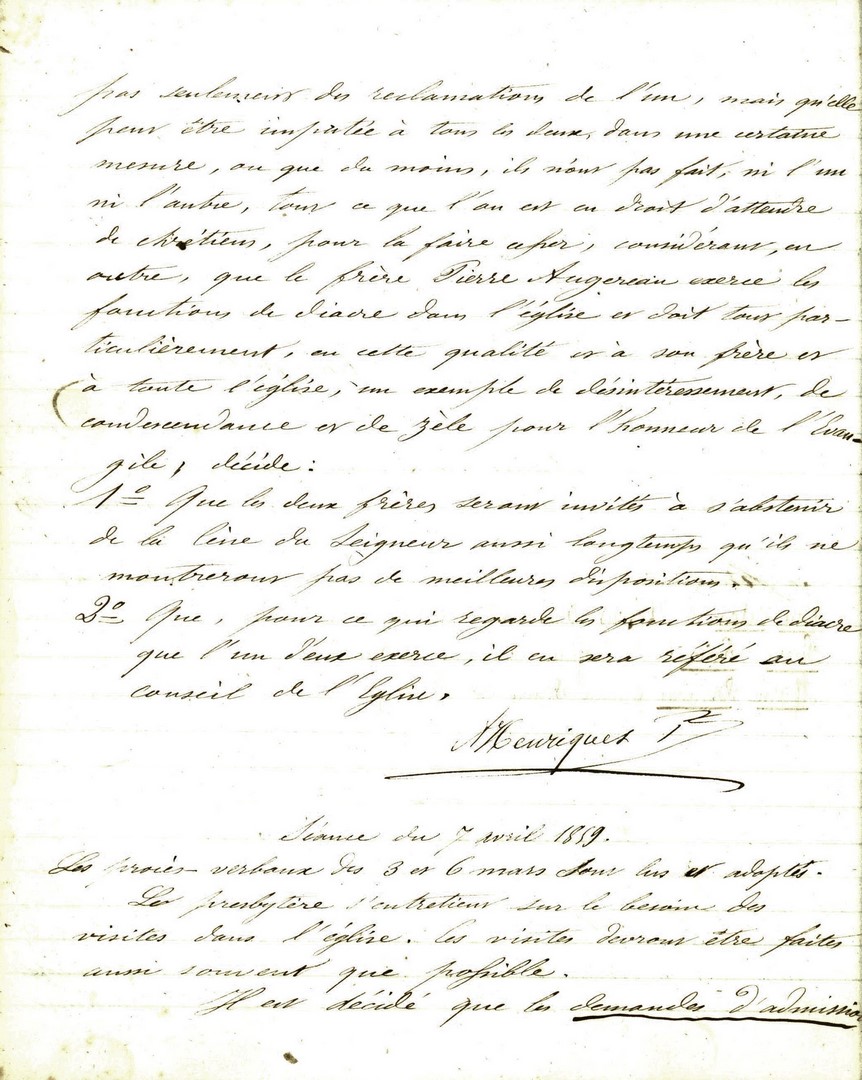 pas seulement des reclamations de l'un, mais qu'elle
peut être imputée à tous les deux, dans une certaine
mesure, ou que du moins, ils n'ont pas fait, ni l'un
ni l'autre, tout ce que l'on est en droit d'attendre
de chrétiens, pour la faire cesser, considérant, en
outre, que le frère Pierre Augereau exerce les
fonctions de diacre dans l'église et doit tout par-
ticulièrement, en cette qualité et à son frère et
à toute l'église, un exemple de désintéressement, de
condescendance et de zèle pour l'honneur de l'Evan-
gile, décide:
1º Que les deux frères seront invités à s'abstenir
de la Cène du Seigneur aussi longtemps qu'ils ne
montreront pas de meilleures dispositions.
2º Que, pour ce qui regarde les fonctions de diacre
que l'un d'eux exerce, il en sera référé au
conseil de l'Eglise.
Henriquet
Séance du 7 avril 1859.
Les procès-verbaux des 3 et 6 mars sont lus et adoptés.
Le presbytère s'entretient sur le besoin des
visites dans l'église. Les visites devront être faites
aussi souvent que possible.
Il est décidé que les demandes d'admission